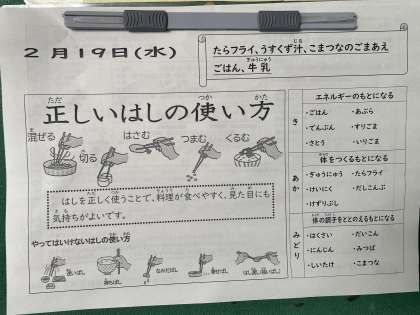 2月19日(水)
たらフライ、うすくず汁、こまつなのごまあえ
ごはん、牛乳
正しいはしの使い方
混ぜる
切る
はさむ
つまむ
くるむ
はしを正しく使うことで、料理が食べやすく、見た目にも
気持ちがよいです。
やってはいけないはしの使い方
き
エネルギーのもとになる
・ごはん ・あぶら
・でんぷん ・すりごま
・さとう ・いりごま
あか
体をつくるもとになる
・ぎゅうにゅう ・たらフライ
・けいにく ・だしこんぶ
・けずりぶし
みどり
体の調子をととのえるもとになる
・はくさい ・だいこん
・にんじん ・みつば
・しいたけ ・こまつな